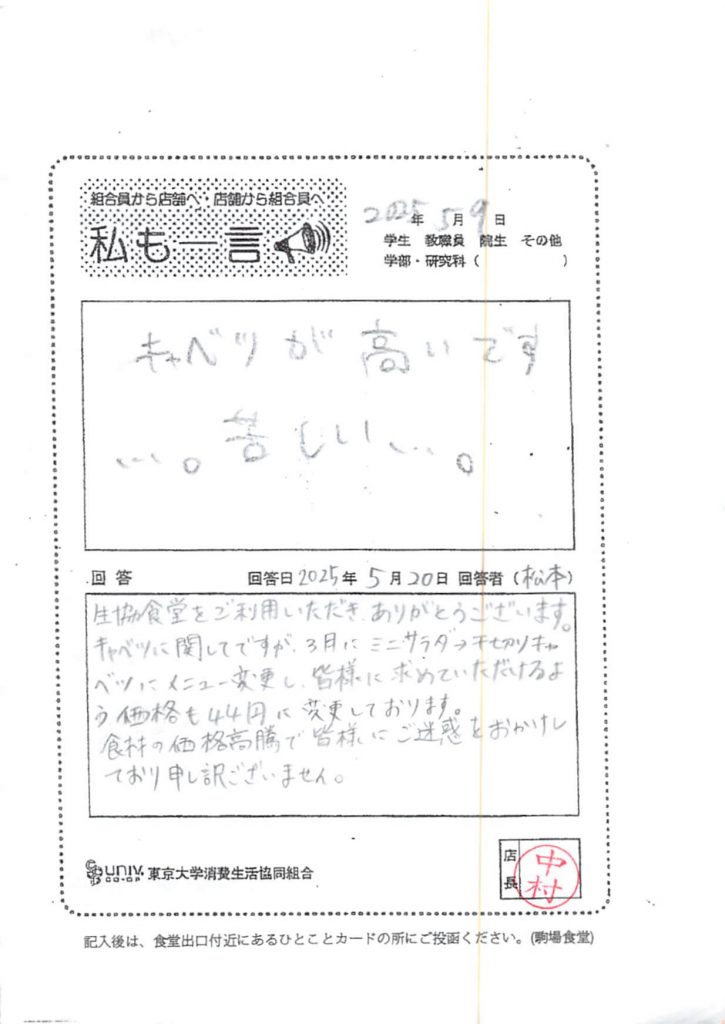 組合員から店舗へ・店舗から組合員へ
私も一言
2025年 5月 9日
学生 教職員 院生 その他
学部・研究科( )
キャベツが高いです
…。苦しい…。
回答 回答日2025年 5月20日 回答者(松本)
生協食堂をご利用いただき、ありがとうございます。
キャベツに関してですが、3月にミニサラダ→千切りキャ
ベツにメニュー変更し、皆様に求めていただけるよ
う価格も44円に変更しております。
食材の価格高騰で皆様にご迷惑をおかけし
ており申し訳ございません。
UNIV. CO-OP 東京大学消費生活協同組合
店長 中村
記入後は、食堂出口付近にあるひとことカードの所にご投函ください。(駒場食堂)